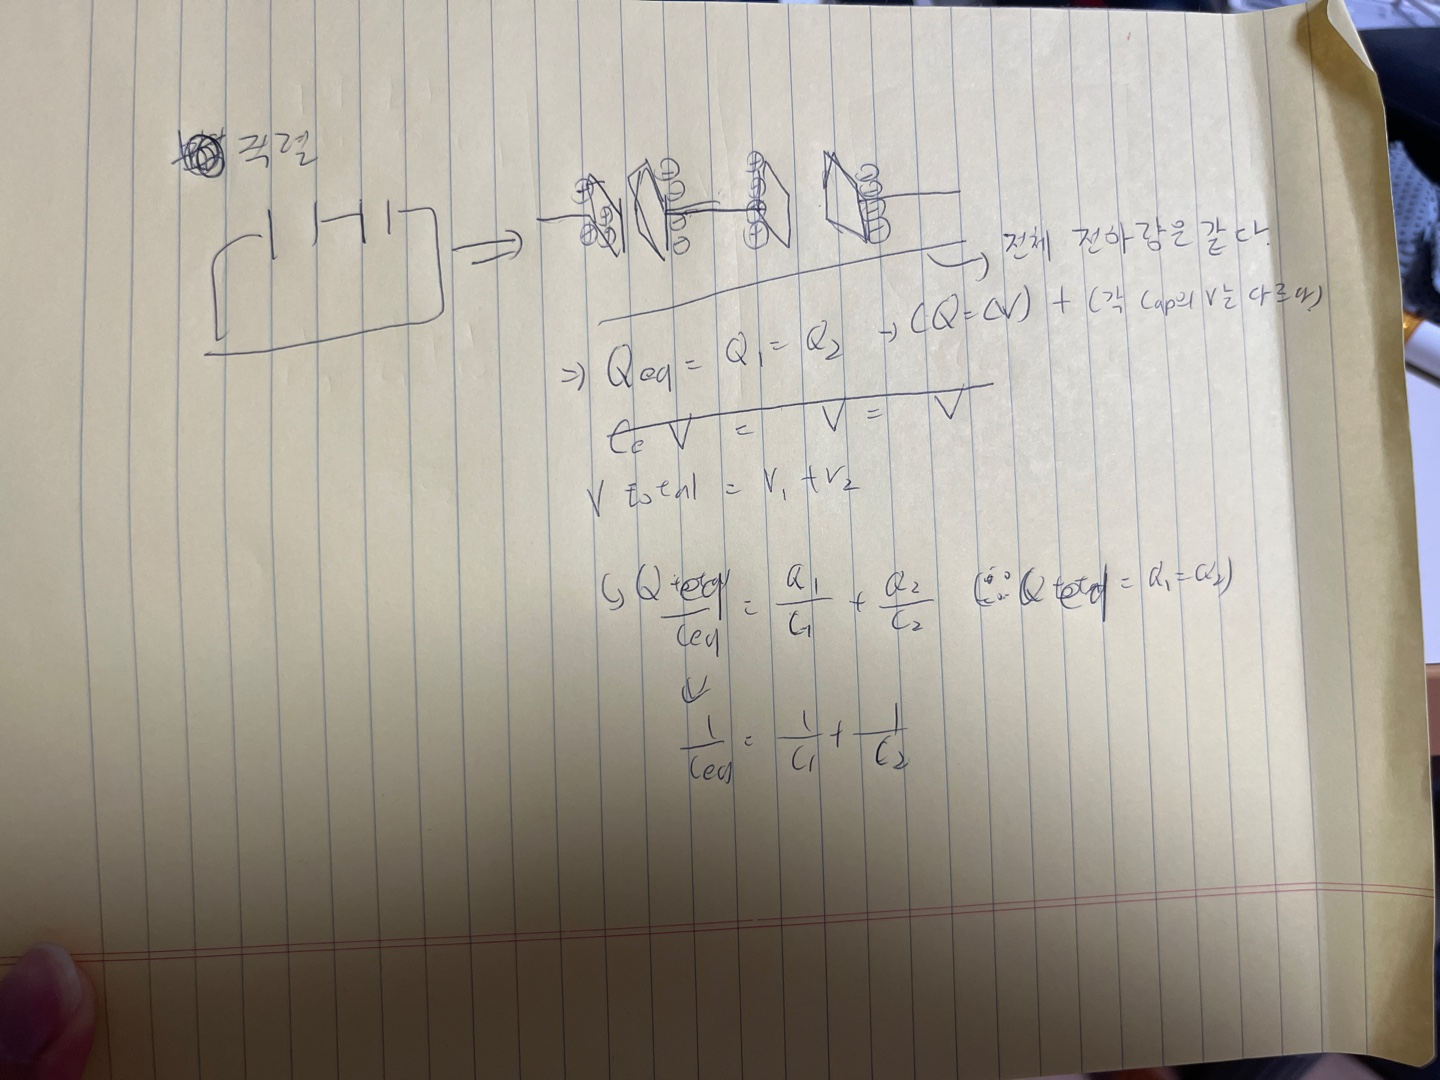 직렬
전체 전하량은 같다.
⇒ Qeq = Q₁ = Q₂ → (Q=CV) + (각 Cap의 V는 다르다)
V = V = V
V total = V₁ + V₂
↳ Q total/Ceq = Q₁/C₁ + Q₂/C₂ (∵ Q total = Q₁ = Q₂)
1/Ceq = 1/C₁ + 1/C₂